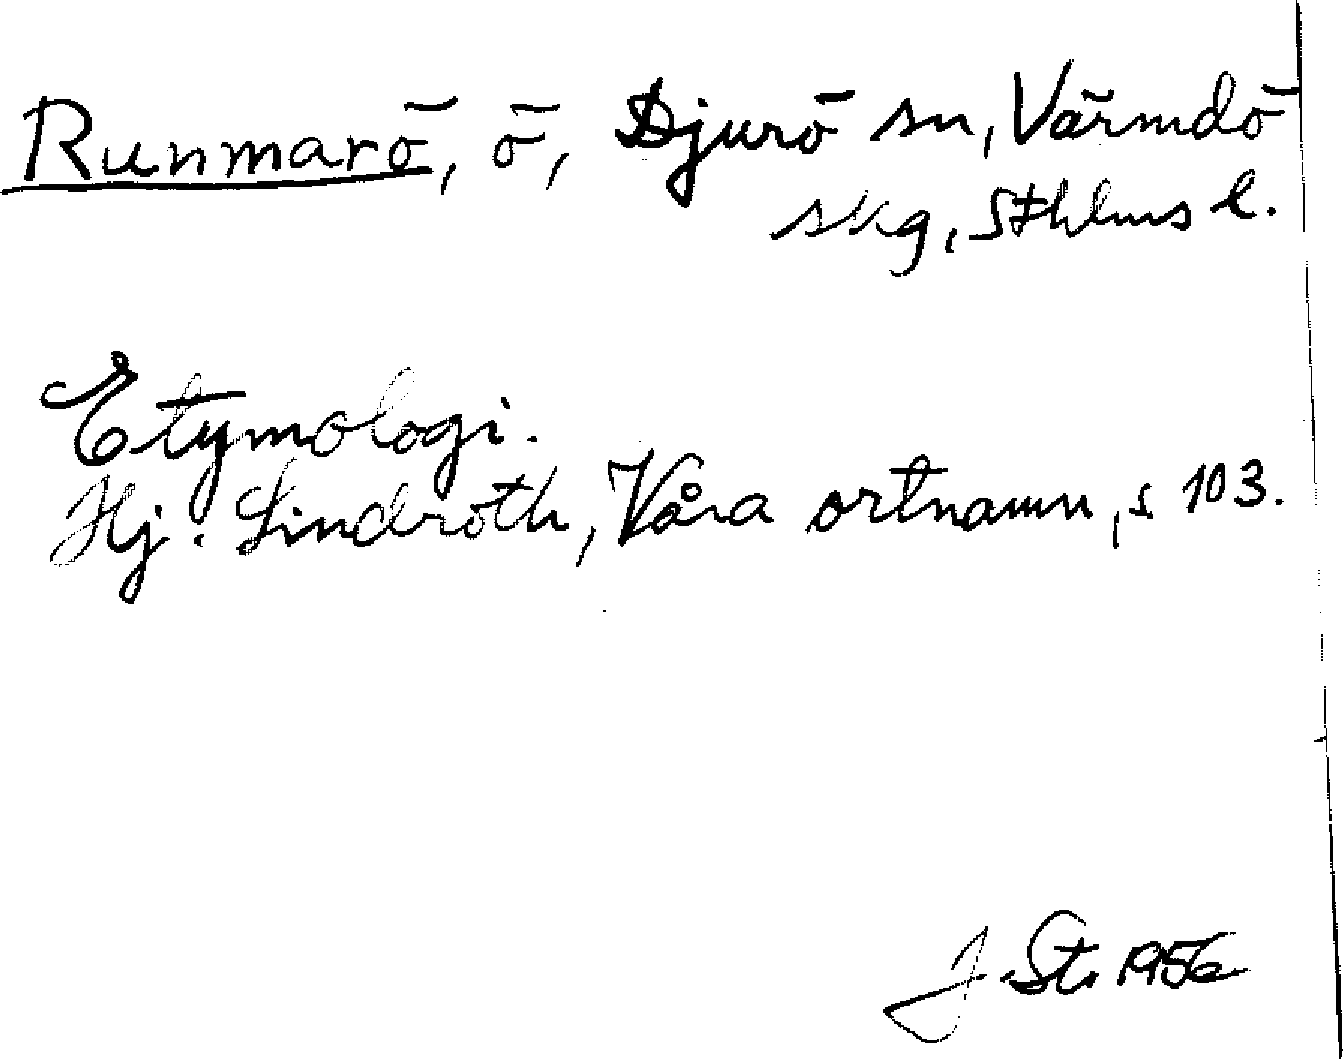 Runmarö, ö, Djurö sn, Värmdö
skg, Sthlms l.
Etymologi.
Hj. Lindroth, Våra ortnamn, s 103.
J. St. 1956